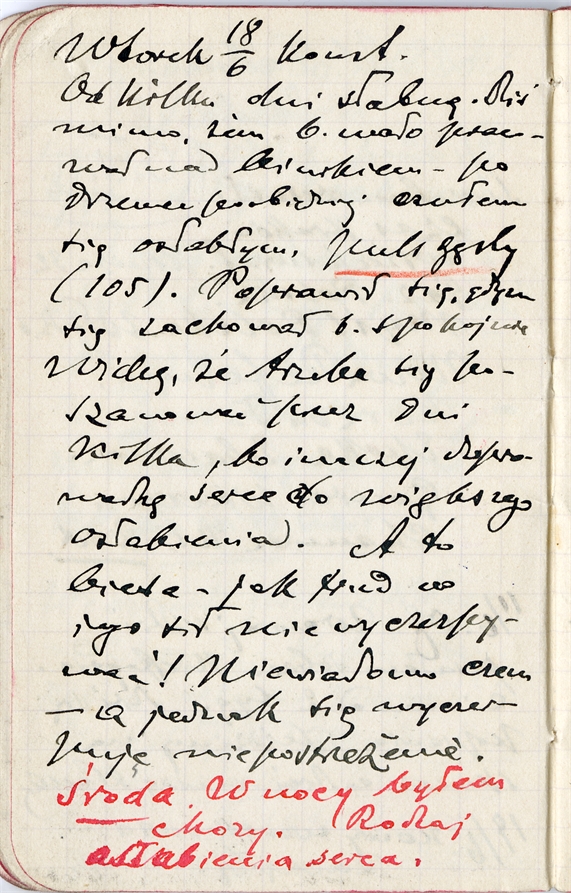 Wtorek 18/6 Konst.
Od kilku dni słabnę. Dziś
mimo, żem b. mało praco-
wał nad Mińskiem - po
drzemce poobiedniej czułem
się osłabłym, puls gęsty
(105). Poprawił się, gdym
się zachował b. spokojnie
Widzę, że trzeba się po-
szanować przez dni
kilka, bo inaczej dopro-
wadzę serce do większego
osłabienia. A to
bieda - jak tu
jego sił nie wyczerpy-
wać! Niewiadomo czem
- a jednak się wyczer-
pują niepostrzeżenie.
Środa. W nocy byłem
chory. Rodzaj
osłabienia serca.